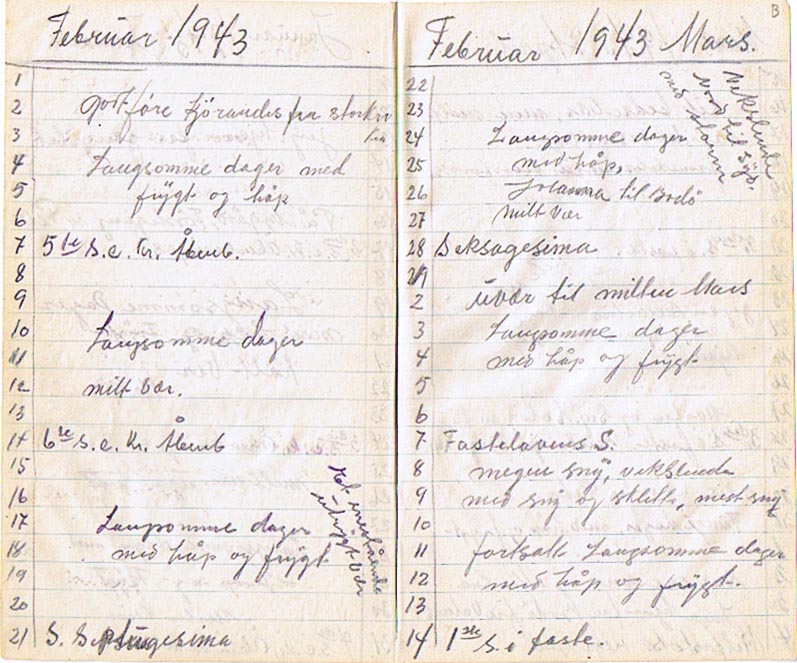 Februar 1943
1
2 godt føre kjörandes fra stor
3
4 Langsomme dager med
5 frygt og håp
6
7 5te S. e. Kr. Åbenb.
8
9
10 Langsomme dager
11
12 milt vær.
13
14 6te S. e. Kr. Åbenb
15
16
17 Langsomme dager
18 med håp og frygt
19
20
21 S. Septuagesima
Det
utrygt vær
3
Februar 1943 Mars.
22
23
24 Langsomme dager
25 med håp,
26 Johanna til Bodö
27 milt vær
28 Seksagesima
1
2 uvær til midten Mars
3 Langsomme dager
4 med håp og frygt
5
6
7 Fastelavens S.
8 megen sny, vekslende
9 med sny og slette, mest sny
10
11 fortsatt Langsomme dager
12 med håp og frygt.
13
14 1ste S. i faste.
Vekslende
nord til syd.
med storm